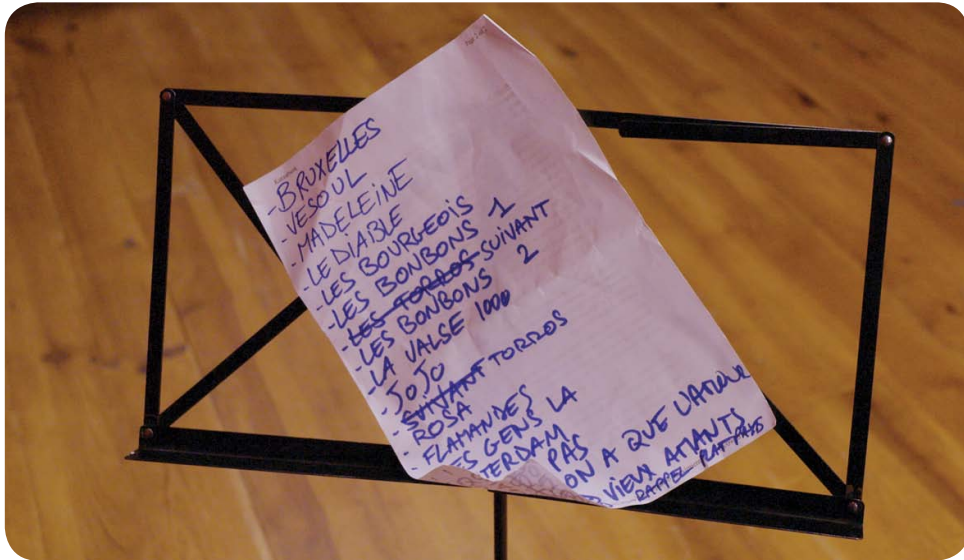 - BRUXELLES
- VESOUL
- MADELEINE
- LE DIABLE
- LES BOURGEOIS
- LES BONBONS 1
- LES TORROS SUIVANT
- LES BONBONS 2
- LA VALSE 1000
- JOJO
- SUIVANT TORROS
ROSA
- FLAMANDES
ES GENS LA
TERDAM
PAS
ON A QUE L'AMOUR
VIEUX AMANTS
RAPPEL PLAT PAYS